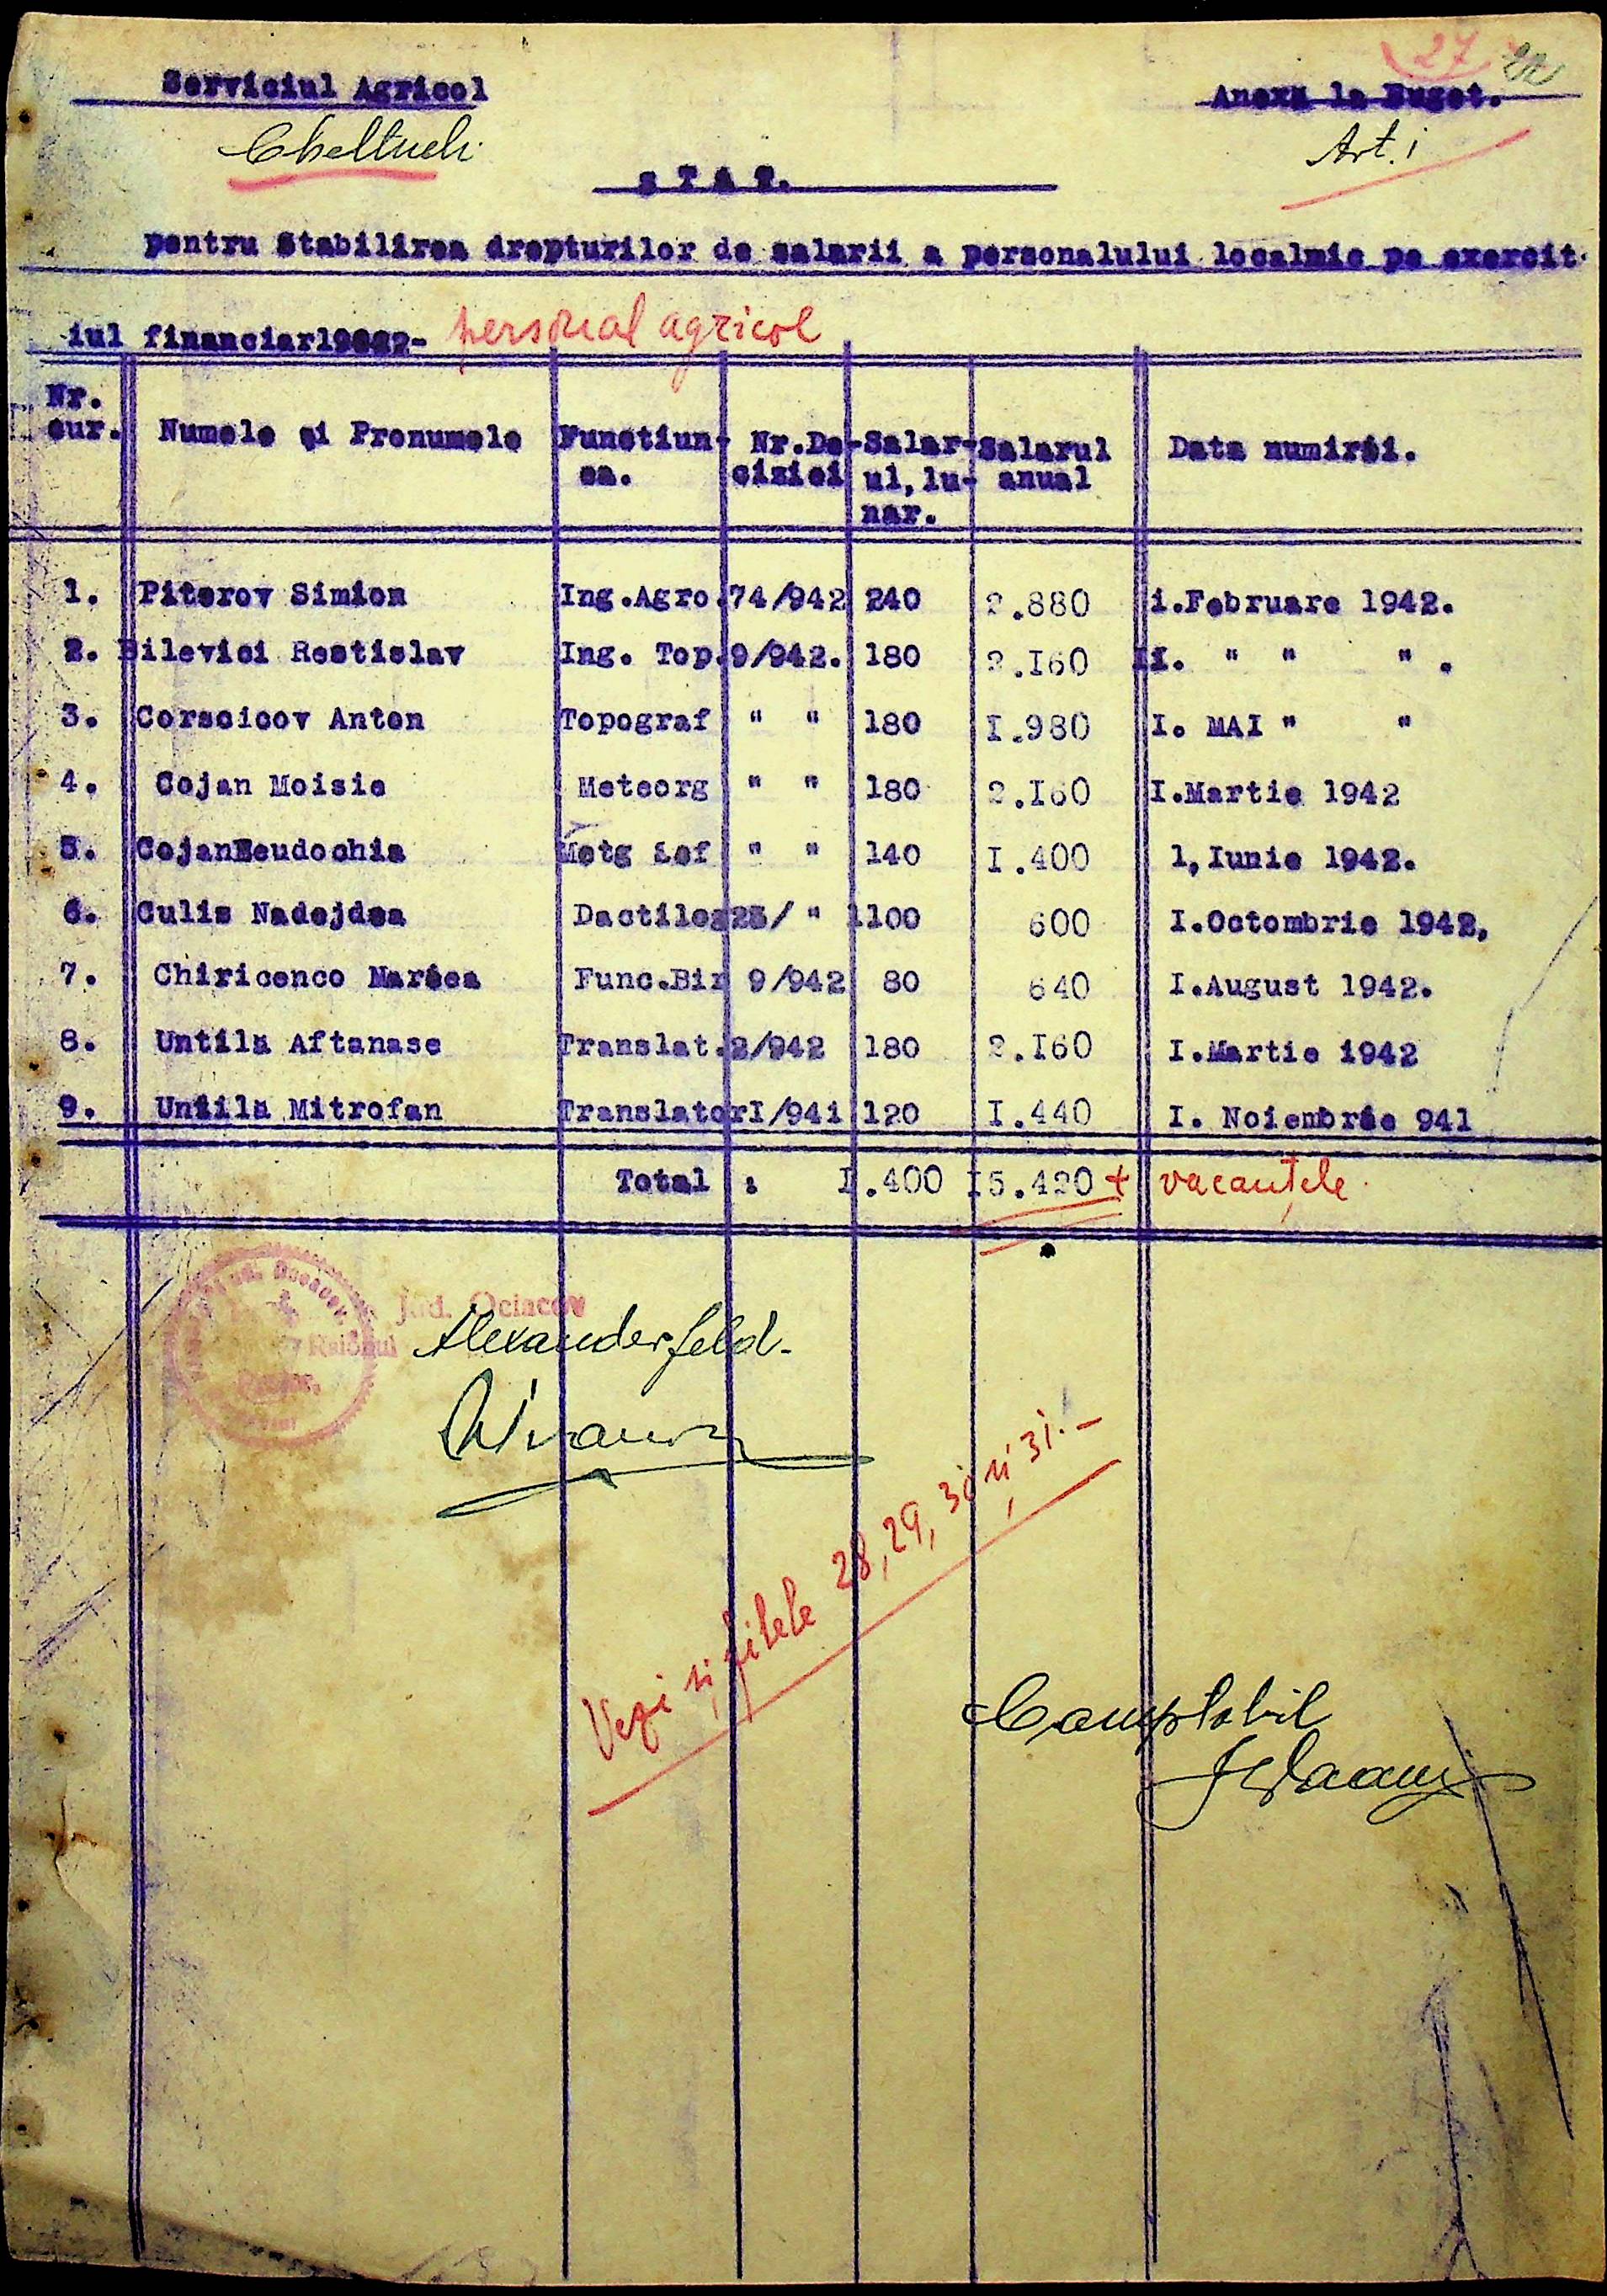 27
Serviciul Agricol
Anexa la Buget.
Cheltueli
Art. i
S T A T.
pentru Stabilirea drepturilor de salarii a personalului localnic pe exercit-
iul financiar 1942-
personal agricol
Nr. cur. Numele și Pronumele Functiun- ea. Nr.De- ciziei Salar- ul,lu- nar. Salarul anual Data numirii.
1. Piterov Simion Ing.Agro. 74/942 240 2.880 i.Februare 1942.
2. Bilevici Rostislav Ing. Top. 9/942. 180 2.I60 I. " " " .
3. Corscicov Anton Topograf " " 180 I.980 I. MAI " "
4. Cojan Moisie Meteorg " " 180 2.I60 I.Martie 1942
5. Cojan Eeudochia Metg " " 140 I.400 1,Iunie 1942.
6. Culis Nadejdea Dactilog 23/ " 100 600 I.Octombrie 1942,
7. Chiricenco Mareea Func.Bir 9/942 80 640 I.August 1942.
8. Untila Aftanase Translat. 2/942 180 2.I60 I.Martie 1942
9. Untila Mitrofan Translator I/941 120 I.440 I. Noiembrie 941
Total : I.400 I5.420 + vacanțele
Jud. Ociacov
Raionul
Alexanderfeld.
Vezi și filele 28, 29, 30 și 31.-
Comptabil